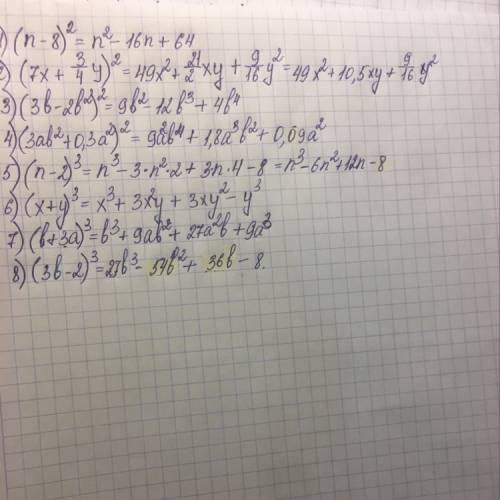 1) (n-8)² = n² - 16n + 64
2) (7x + 3/4 y)² = 49x² + 21/2 xy + 9/16 y² = 49x² + 10,5xy + 9/16 y²
3) (3b - 2b²)² = 9b² - 12b³ + 4b⁴
4) (3ab² + 0,3a²)² = 9a²b⁴ + 1,8a³b² + 0,09a²
5) (n-2)³ = n³ - 3·n²·2 + 3n·4 - 8 = n³ - 6n² + 12n - 8
6) (x+y)³ = x³ + 3x²y + 3xy² - y³
7) (b+3a)³ = b³ + 9ab² + 27a²b + 9a³
8) (3b-2)³ = 27b³ - 54b² + 36b - 8.